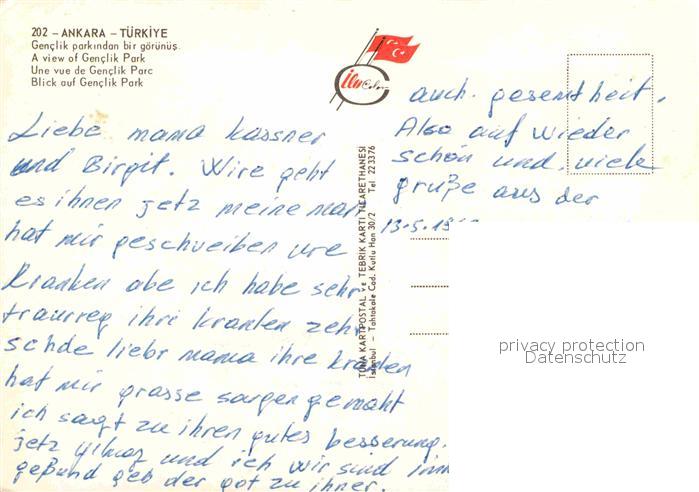 202 – ANKARA – TÜRKİYE
Gençlik parkından bir görünüş
A view of Gençlik Park
Une vue de Gençlik Parc
Blick auf Gençlik Park
Liebe mama kassner
und Birgit. Wire geht
es ihnen jetz meine mam
hat mir geschveiben ure
Kranken abe ich habe sehr
traurreg ihri kranken zehr
schde liebr mama ihre kranken
hat mir grosse sorgen gemaht
ich sagt zu ihren gutes besserung.
jetz yilmaz und ich wir sind imm
geßund geb der got zu ihner.
auch gesemtheit.
Also auf wieder
schön und. viele
gruße aus der
13.5.19
TUNA KARTPOSTAL ve TEBRİK KARTI TİCARETHANESİ
İstanbul – Tahtakale Cad. Kutlu Han 30/2 Tel 223376
privacy protection
Datenschutz